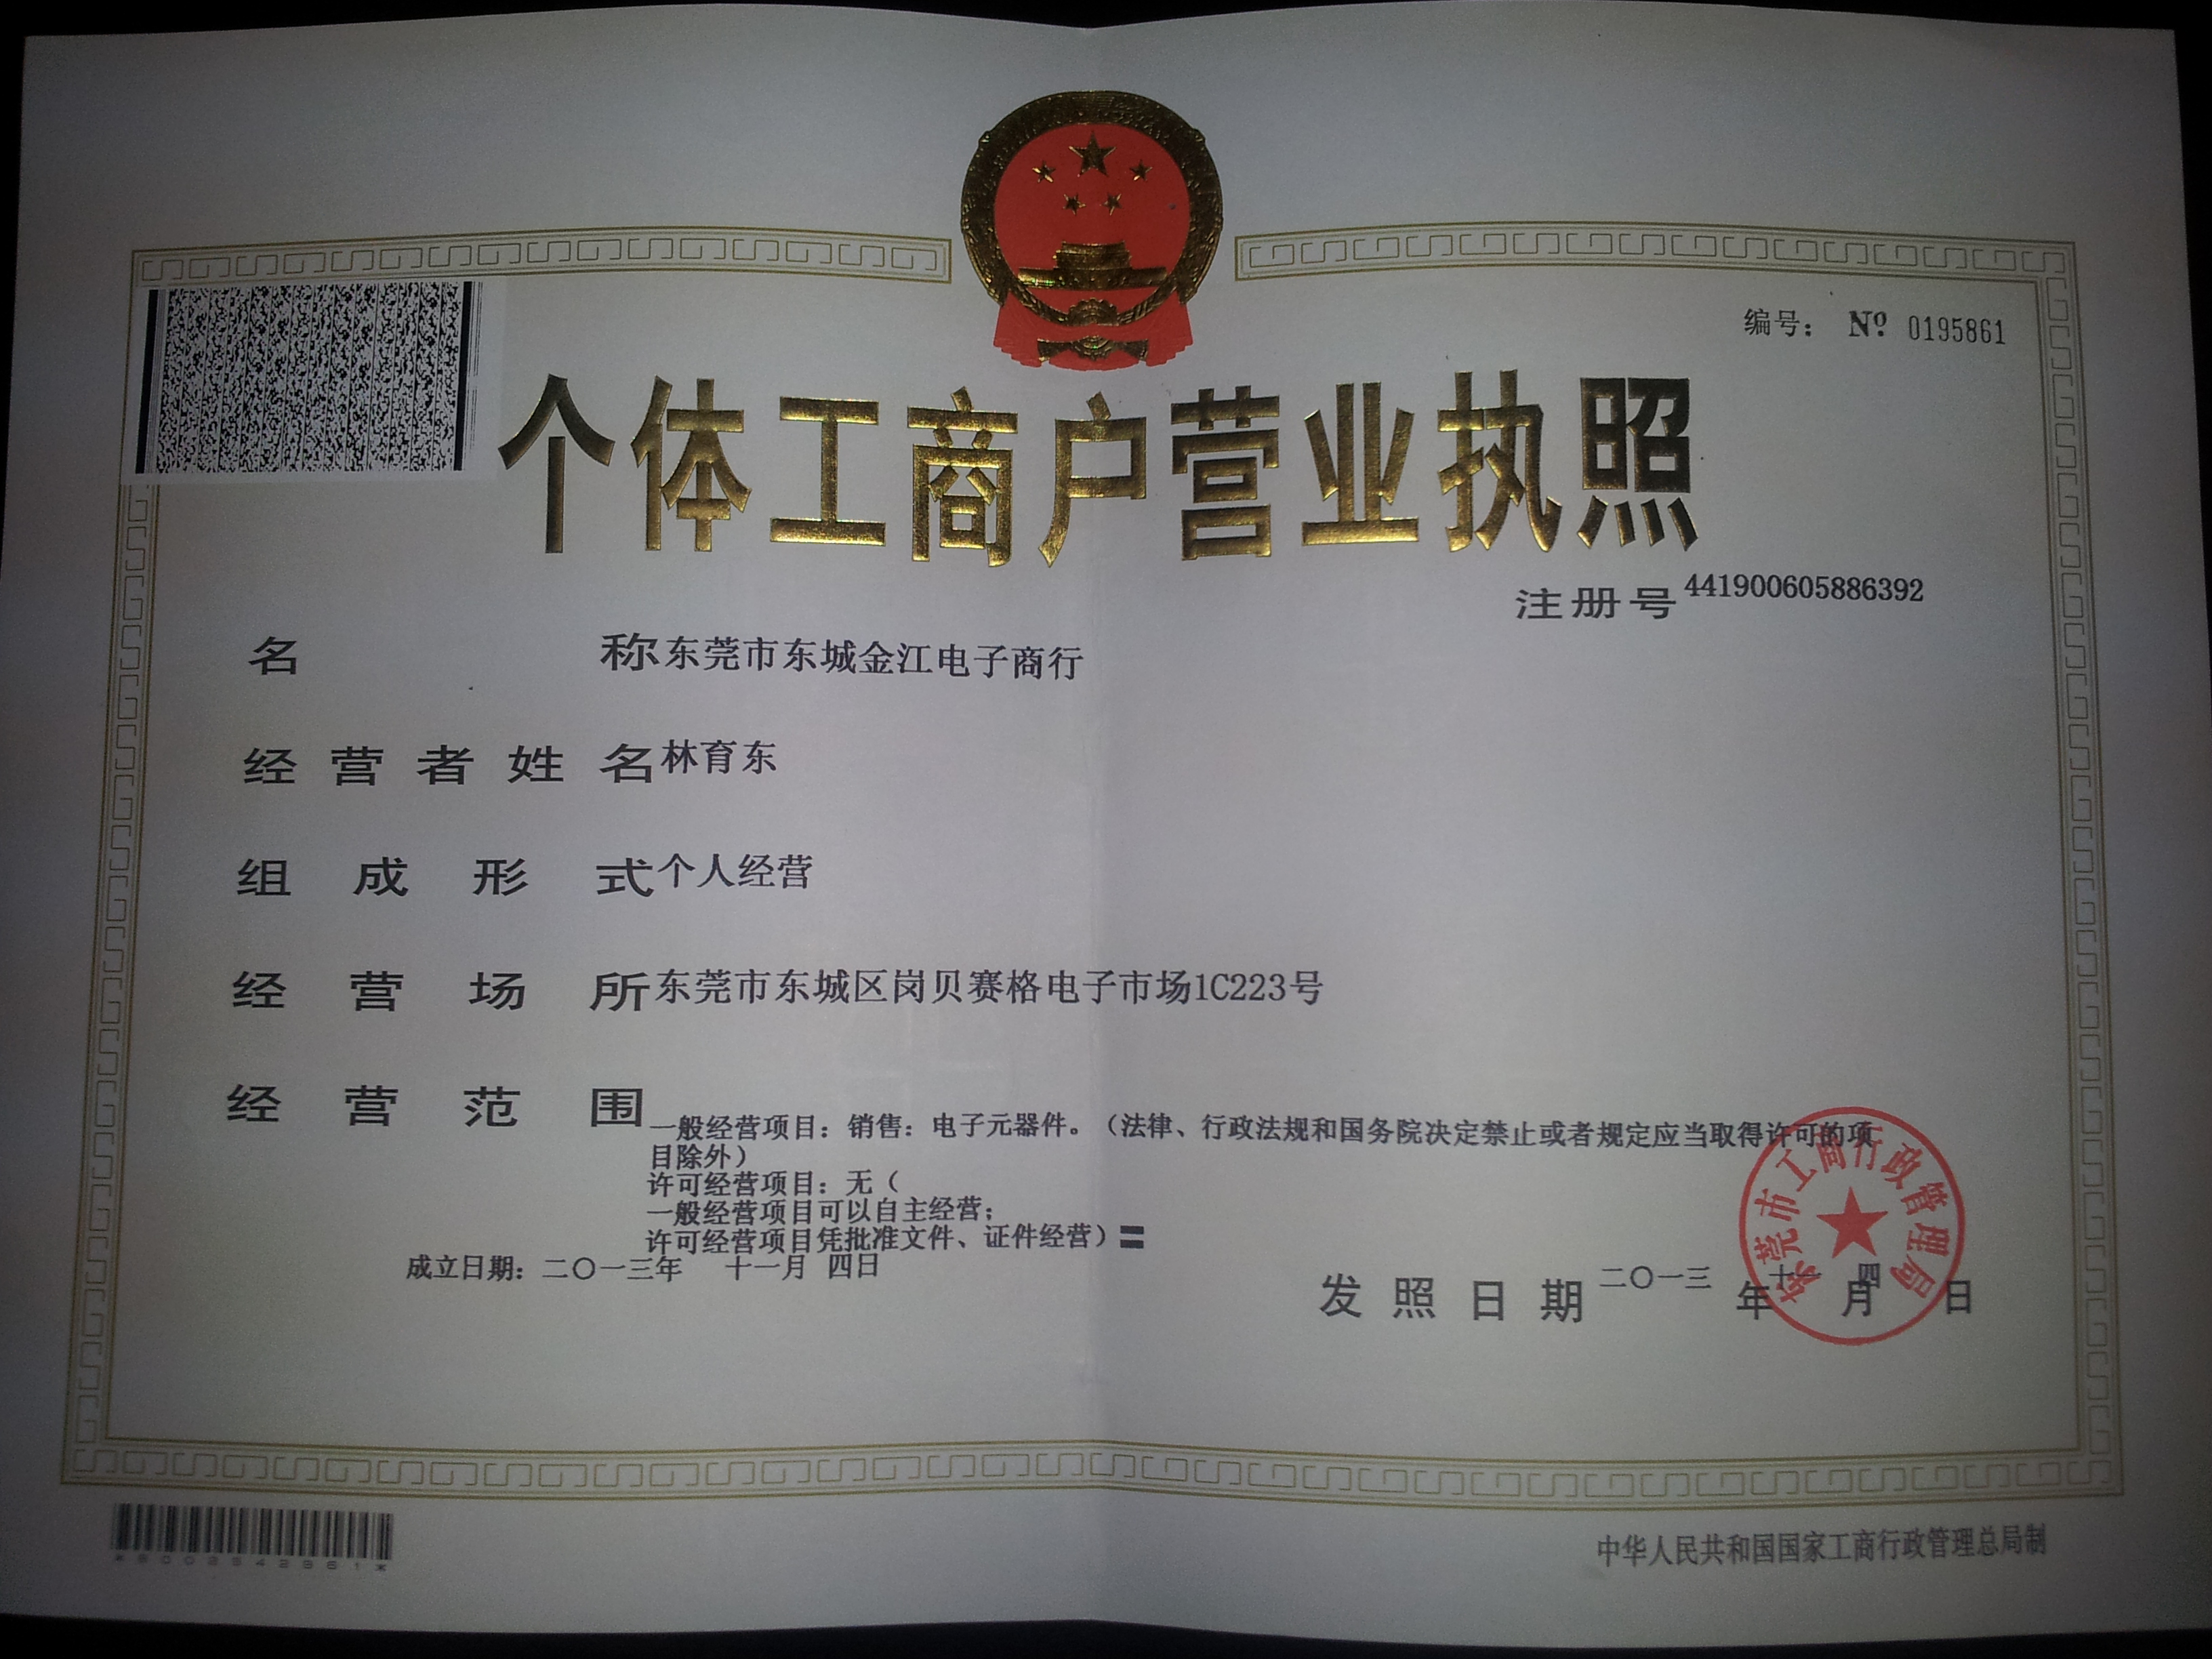 编号： Nº 0195861
个体工商户营业执照
注册号441900605886392
名称东莞市东城金江电子商行
经营者姓名林育东
组成形式个人经营
经营场所东莞市东城区岗贝赛格电子市场1C223号
经营范围
一般经营项目：销售：电子元器件。（法律、行政法规和国务院决定禁止或者规定应当取得许可的项
目除外）
许可经营项目：无（
一般经营项目可以自主经营；
许可经营项目凭批准文件、证件经营）〓
成立日期：二〇一三年 十一月 四日
发照日期二〇一三年十一月四日
东莞市工商行政管理局
中华人民共和国国家工商行政管理总局制